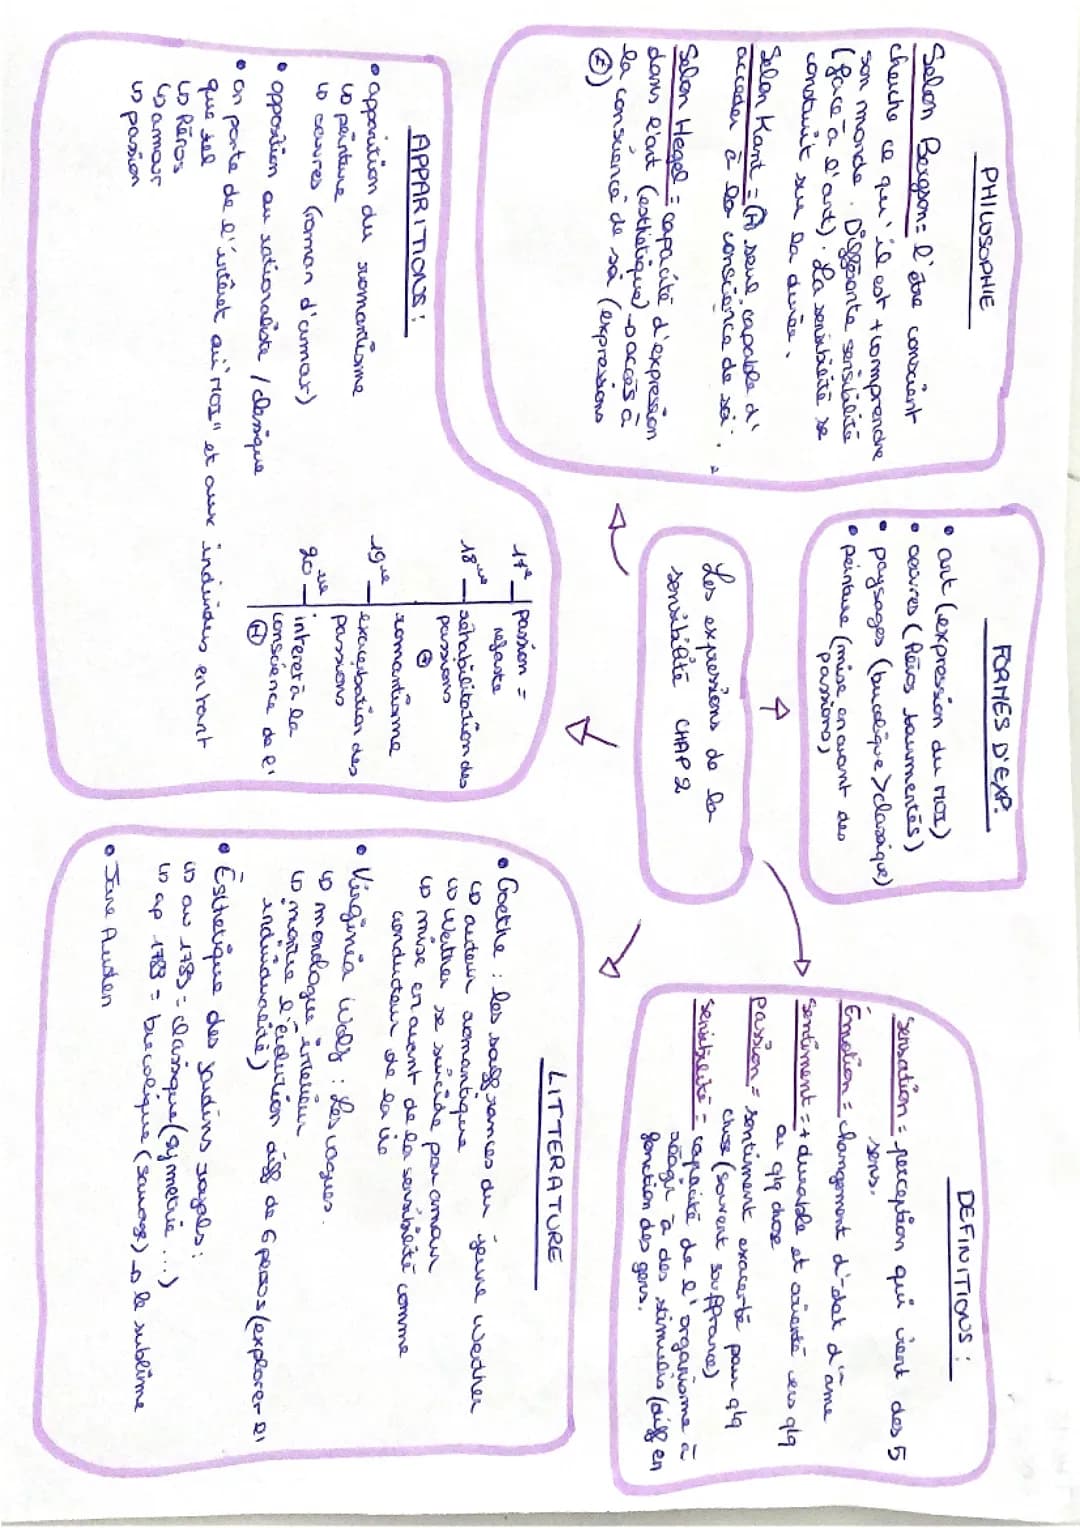 PHILOSOPHIE
Selon Bergson = l'être conscient
cherche ce qu'il est + comprendre
son monde. Différente sensibilité
(face à l'art). La sensibilité se
construit sur la durée.
Selon Kant = (H) seul capable d'
accéder à la conscience de soi.
Selon Hegel = capacité d'expression
dans l'art (esthétique) → accès à
la conscience de soi (expressions
FORMES D'EXP.
• art (expression du MOI)
• œuvres (héros tourmentés)
• paysages (bucolique > classique)
• peinture (mise en avant des
passions)
DEFINITIONS :
Sensation = perception qui vient des 5
sens.
Émotion = changement d'état d'âme
Sentiment = + durable et orienté vers qlq
ou qlq chose
Passion = sentiment exacerbé par qlq
chose (souvent souffrance)
Sensibilité = capacité de l'organisme à
réagir à des stimulis (diff en
fonction des gens.
Les expressions de la
sensibilité CHAP 2
APPARITIONS :
• apparition du romantisme
↳ peinture
↳ œuvres (roman d'amour)
• opposition au rationaliste / classique
• on porte de l'intérêt au "MOI" et aux individus en tant
que tel
↳ héros
↳ amour
↳ passion
17e passion =
néfaste
18ème réhabilitation des
passions
⊕
romantisme
19ème exacerbation des
passions
20ème interêt à la
conscience de l'
(H)
LITTERATURE
• Goethe : les souffrances du jeune Werther
↳ auteur romantique
↳ Werther se suicide par amour
↳ mise en avant de la sensibilité comme
conducteur de la vie
• Virginia Wolf : Les vagues.
↳ monologue intérieur
↳ montre l'évolution diff de 6 persos (explorer l'
individualité)
• Esthétique des jardins royals :
↳ av 1789 = classique (symétrie ...)
↳ ap 1789 = bucolique (sauvage) → le sublime
• Jane Austen